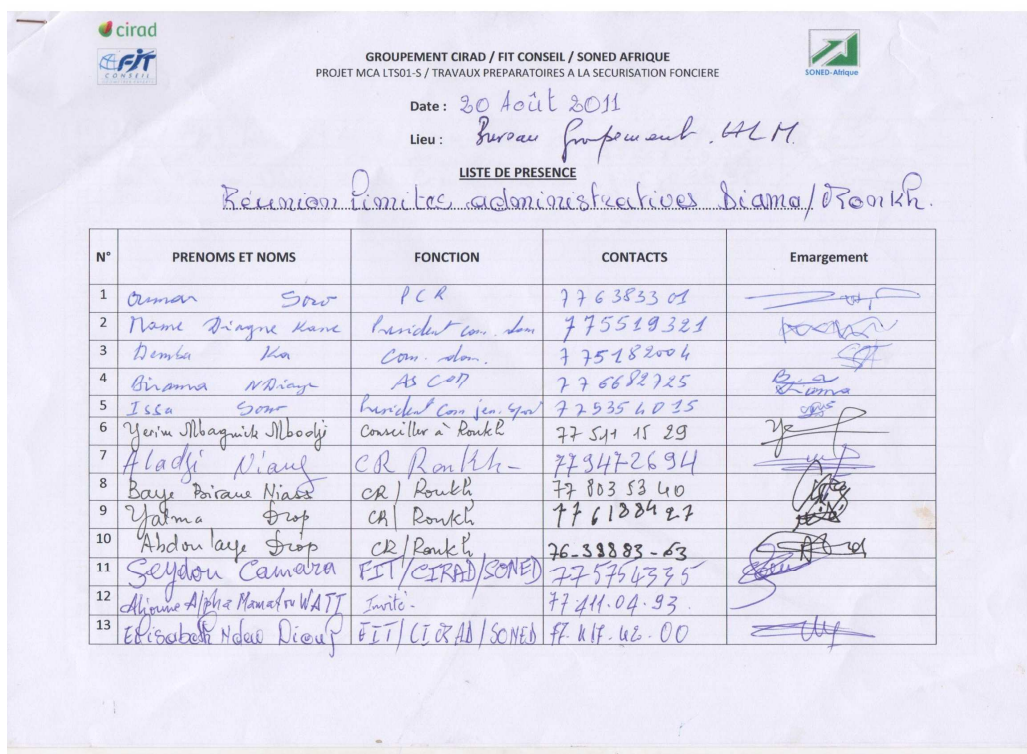 cirad
FIT
CONSEIL
SONED-Afrique
GROUPEMENT CIRAD / FIT CONSEIL / SONED AFRIQUE
PROJET MCA LTS01-S / TRAVAUX PREPARATOIRES A LA SECURISATION FONCIERE
Date : 20 Août 2011
Lieu : Bureau Groupement
LISTE DE PRESENCE
Réunion limites administratives Diama/Ronkh.
N° PRENOMS ET NOMS FONCTION CONTACTS Emargement
1 Oumar Sow PCR 776383301
2 Mame Diagne Kane President com. dom 775519321
3 Demba Ka Com. dom. 775182004
4 Birama NDiaye AS COM 776682725
5 Issa Sow President Com 775354015
6 Yerim Mbagnick Mbodji Conseiller à Ronkh 15 29
7 Aladji Niang CR Ronkh- 779472694
8 Baye Birane Niass CR/ Ronkh 77 803 53 40
9 Yatma Diop CR/ Ronkh 776188427
10 Abdoulaye Diop CR/Ronkh 76-38883-63
11 Seydou Camara FIT/CIRAD/SONED 775754335
12 Alioune Alpha Mamadou WATT Invité. 77 411.04.93.
13 Elisabeth Ndao Diouf FIT/CIRAD/SONED 77.417.42.00